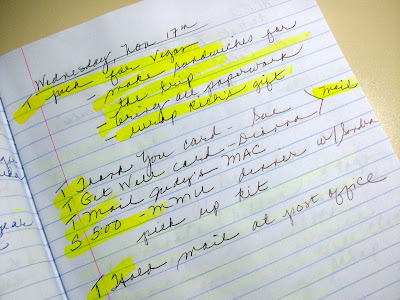 Wednesday, Nov 17th
T pack for Vegas
- make sandwiches for
the trip
- bring all paperwork
- wrap Rich's gift
T Thank You card - Sue
T Get Well card - Dianna mail
T Mail Judy's MAC
S 5:00 - MMU dinner w/
pick up kit
T Hold mail at post office